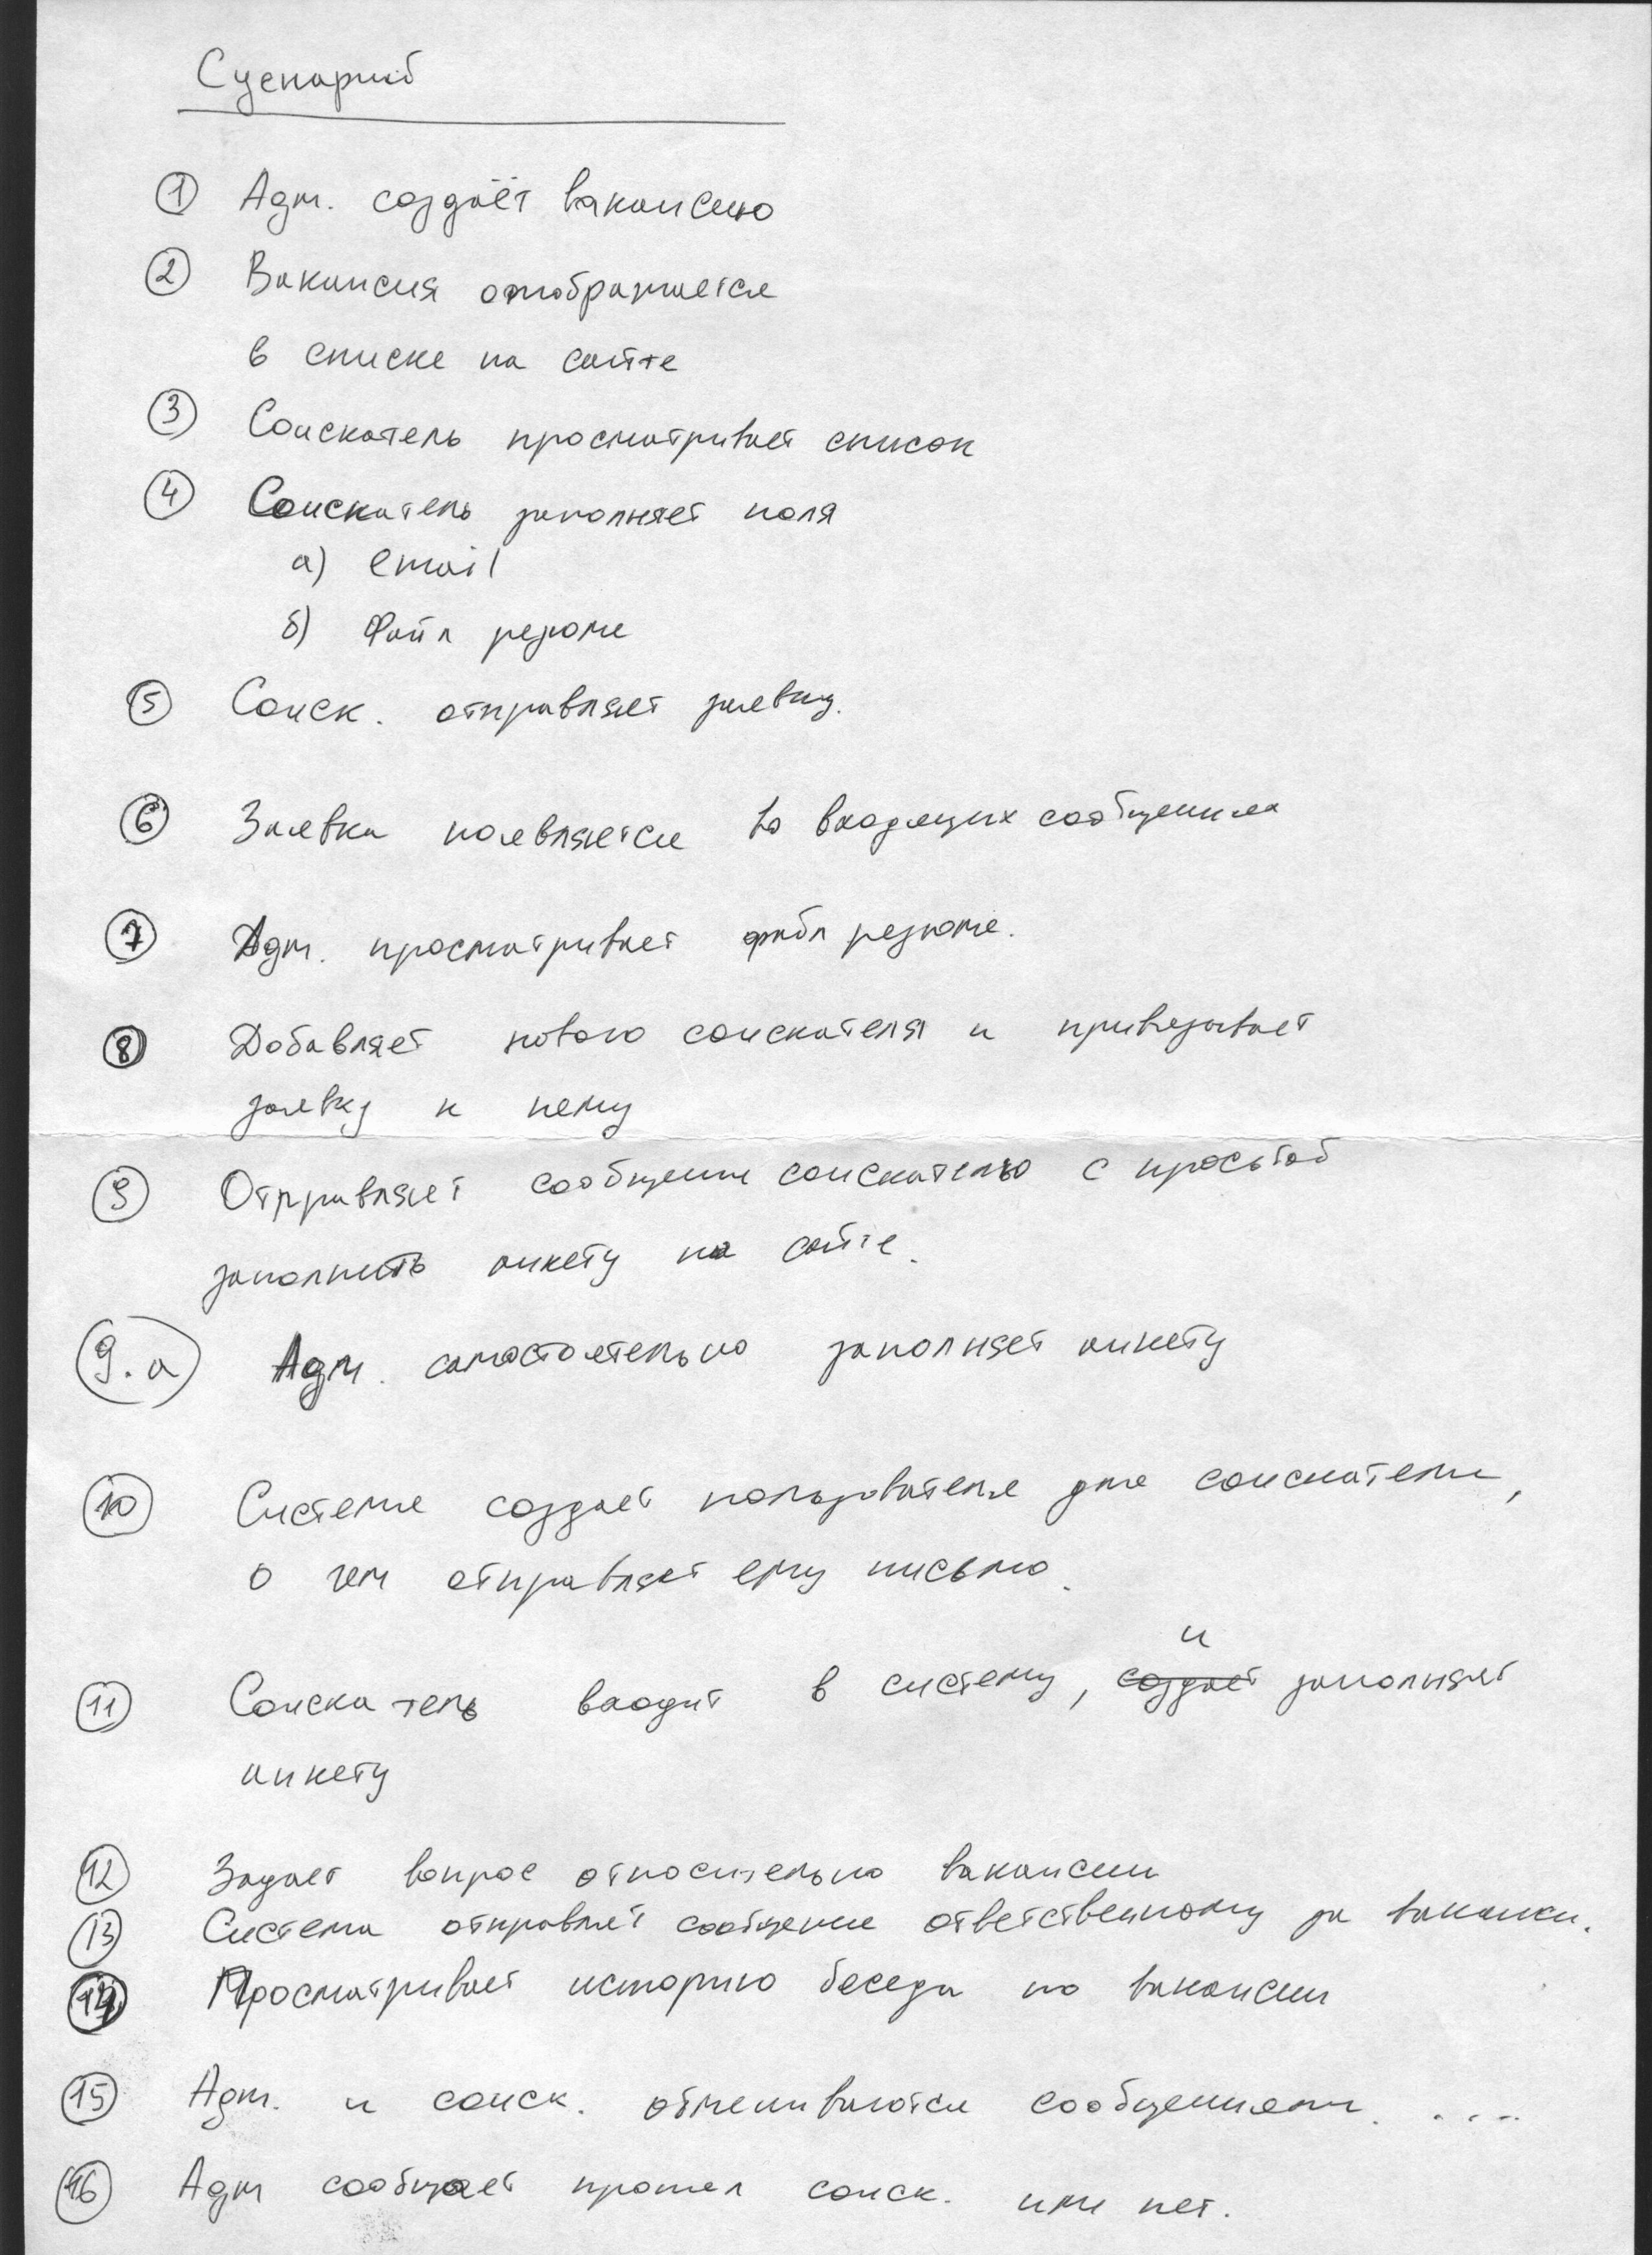 Сценарий
1 Адм. создаёт вакансию
2 Вакансия отображается
в списке на сайте
3 Соискатель просматривает список
4 Соискатель заполняет поля
а) email
б) Файл резюме
5 Соиск. отправляет заявку.
6 Заявка появляется во входящих сообщениях
7 Адм. просматривает файл резюме.
8 Добавляет нового соискателя и привязывает
заявку к нему
9 Отправляет сообщение соискателю с просьбой
заполнить анкету на сайте.
9.а Адм. самостоятельно заполняет анкету
10 Система создает пользователя для соискателя,
о чем отправляет ему письмо.
и
11 Соискатель входит в систему, создает заполняет
анкету
12 Задает вопрос относительно вакансии
13 Система отправляет сообщение ответственному за ваканси.
14 Просматривает историю беседы по вакансии
15 Адм. и соиск. обмениваются сообщениями. ....
16 Адм сообщает прошел соиск. или нет.